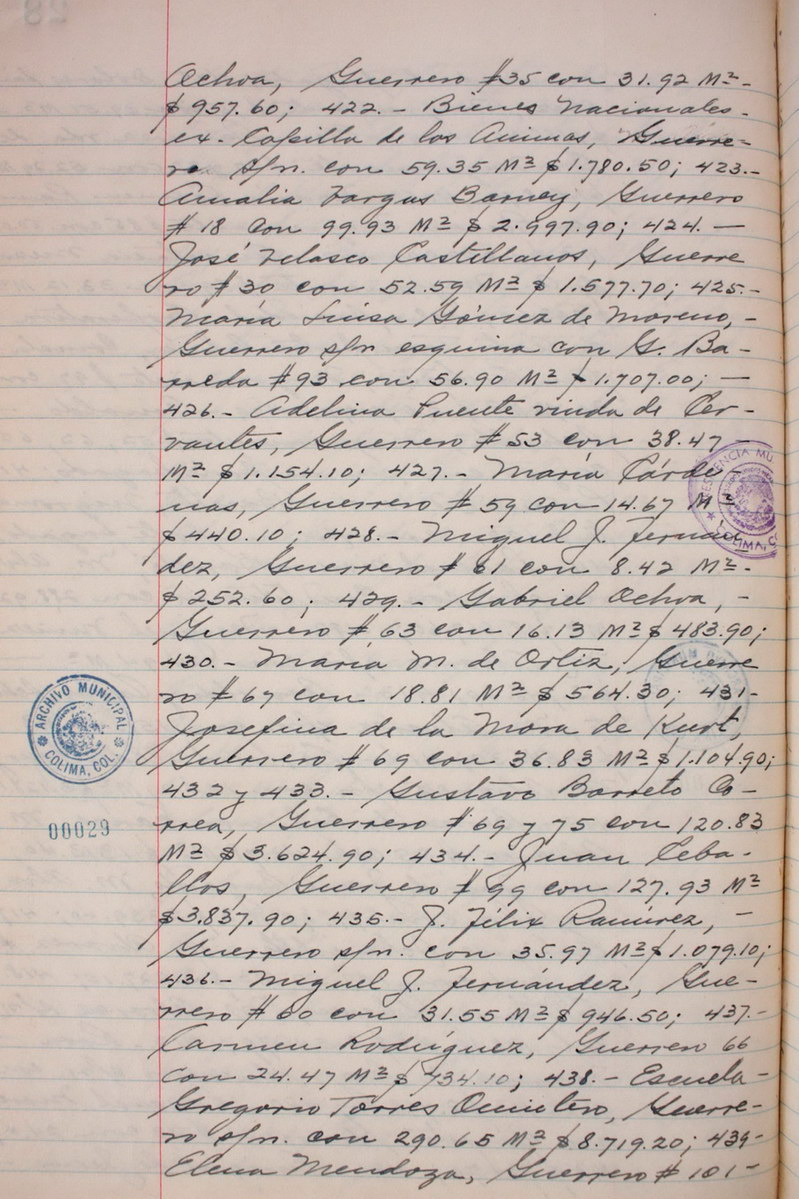 Ochoa, Guerrero #35 con 31.92 M²-
$957.60; 422.- Bienes Nacionales-
ex-Capilla de las Animas, Guerre-
ro s/n. con 59.35 M² $1.780.50; 423.-
Amalia Vargas Barney, Guerrero
#18 con 99.93 M² $2.997.90; 424.—
José Velasco Castillanos, Guerre
ro #30 con 52.59 M² $1.577.70; 425.-
María Luisa Gómez de Moreno,-
Guerrero s/n esquina con G. Ba-
rreda #93 con 56.90 M² $1.707.00;—
426.- Adelina Puente viuda de Cer-
vantes, Guerrero #53 con 38.47-
M² $1.154.10; 427.- María Cárde-
nas, Guerrero #59 con 14.67 M²
$440.10; 428.- Miguel J. Fernán
dez, Guerrero #61 con 8.42 M²-
$252.60; 429.- Gabriel Ochoa,-
Guerrero #63 con 16.13 M² $483.90;
430.- María M. de Ortiz, Guerre
ro #67 con 18.81 M² $564.30; 431-
Josefina de la Mora de Kurt,
Guerrero #69 con 36.83 M² $1.104.90;
432 y 433.- Gustavo Barreto Co-
rrea, Guerrero #69 y 75 con 120.83
M² $3.624.90; 434.- Juan Ceba-
llos, Guerrero #99 con 127.93 M²
$3.837.90; 435.- J. Félix Ramírez,-
Guerrero s/n. con 35.97 M² $1.079.10;
436.- Miguel J. Fernández, Gue-
rrero #60 con 31.55 M² $946.50; 437.-
Carmen Rodríguez, Guerrero 66
con 24.47 M² $734.10; 438.- Escuela-
Gregorio Torres Quintero, Guerre-
ro s/n. con 290.65 M² $8.719.20; 439-
Elena Mendoza, Guerrero #101-
ARCHIVO MUNICIPAL
COLIMA, COL.
00029
COLIMA, CO